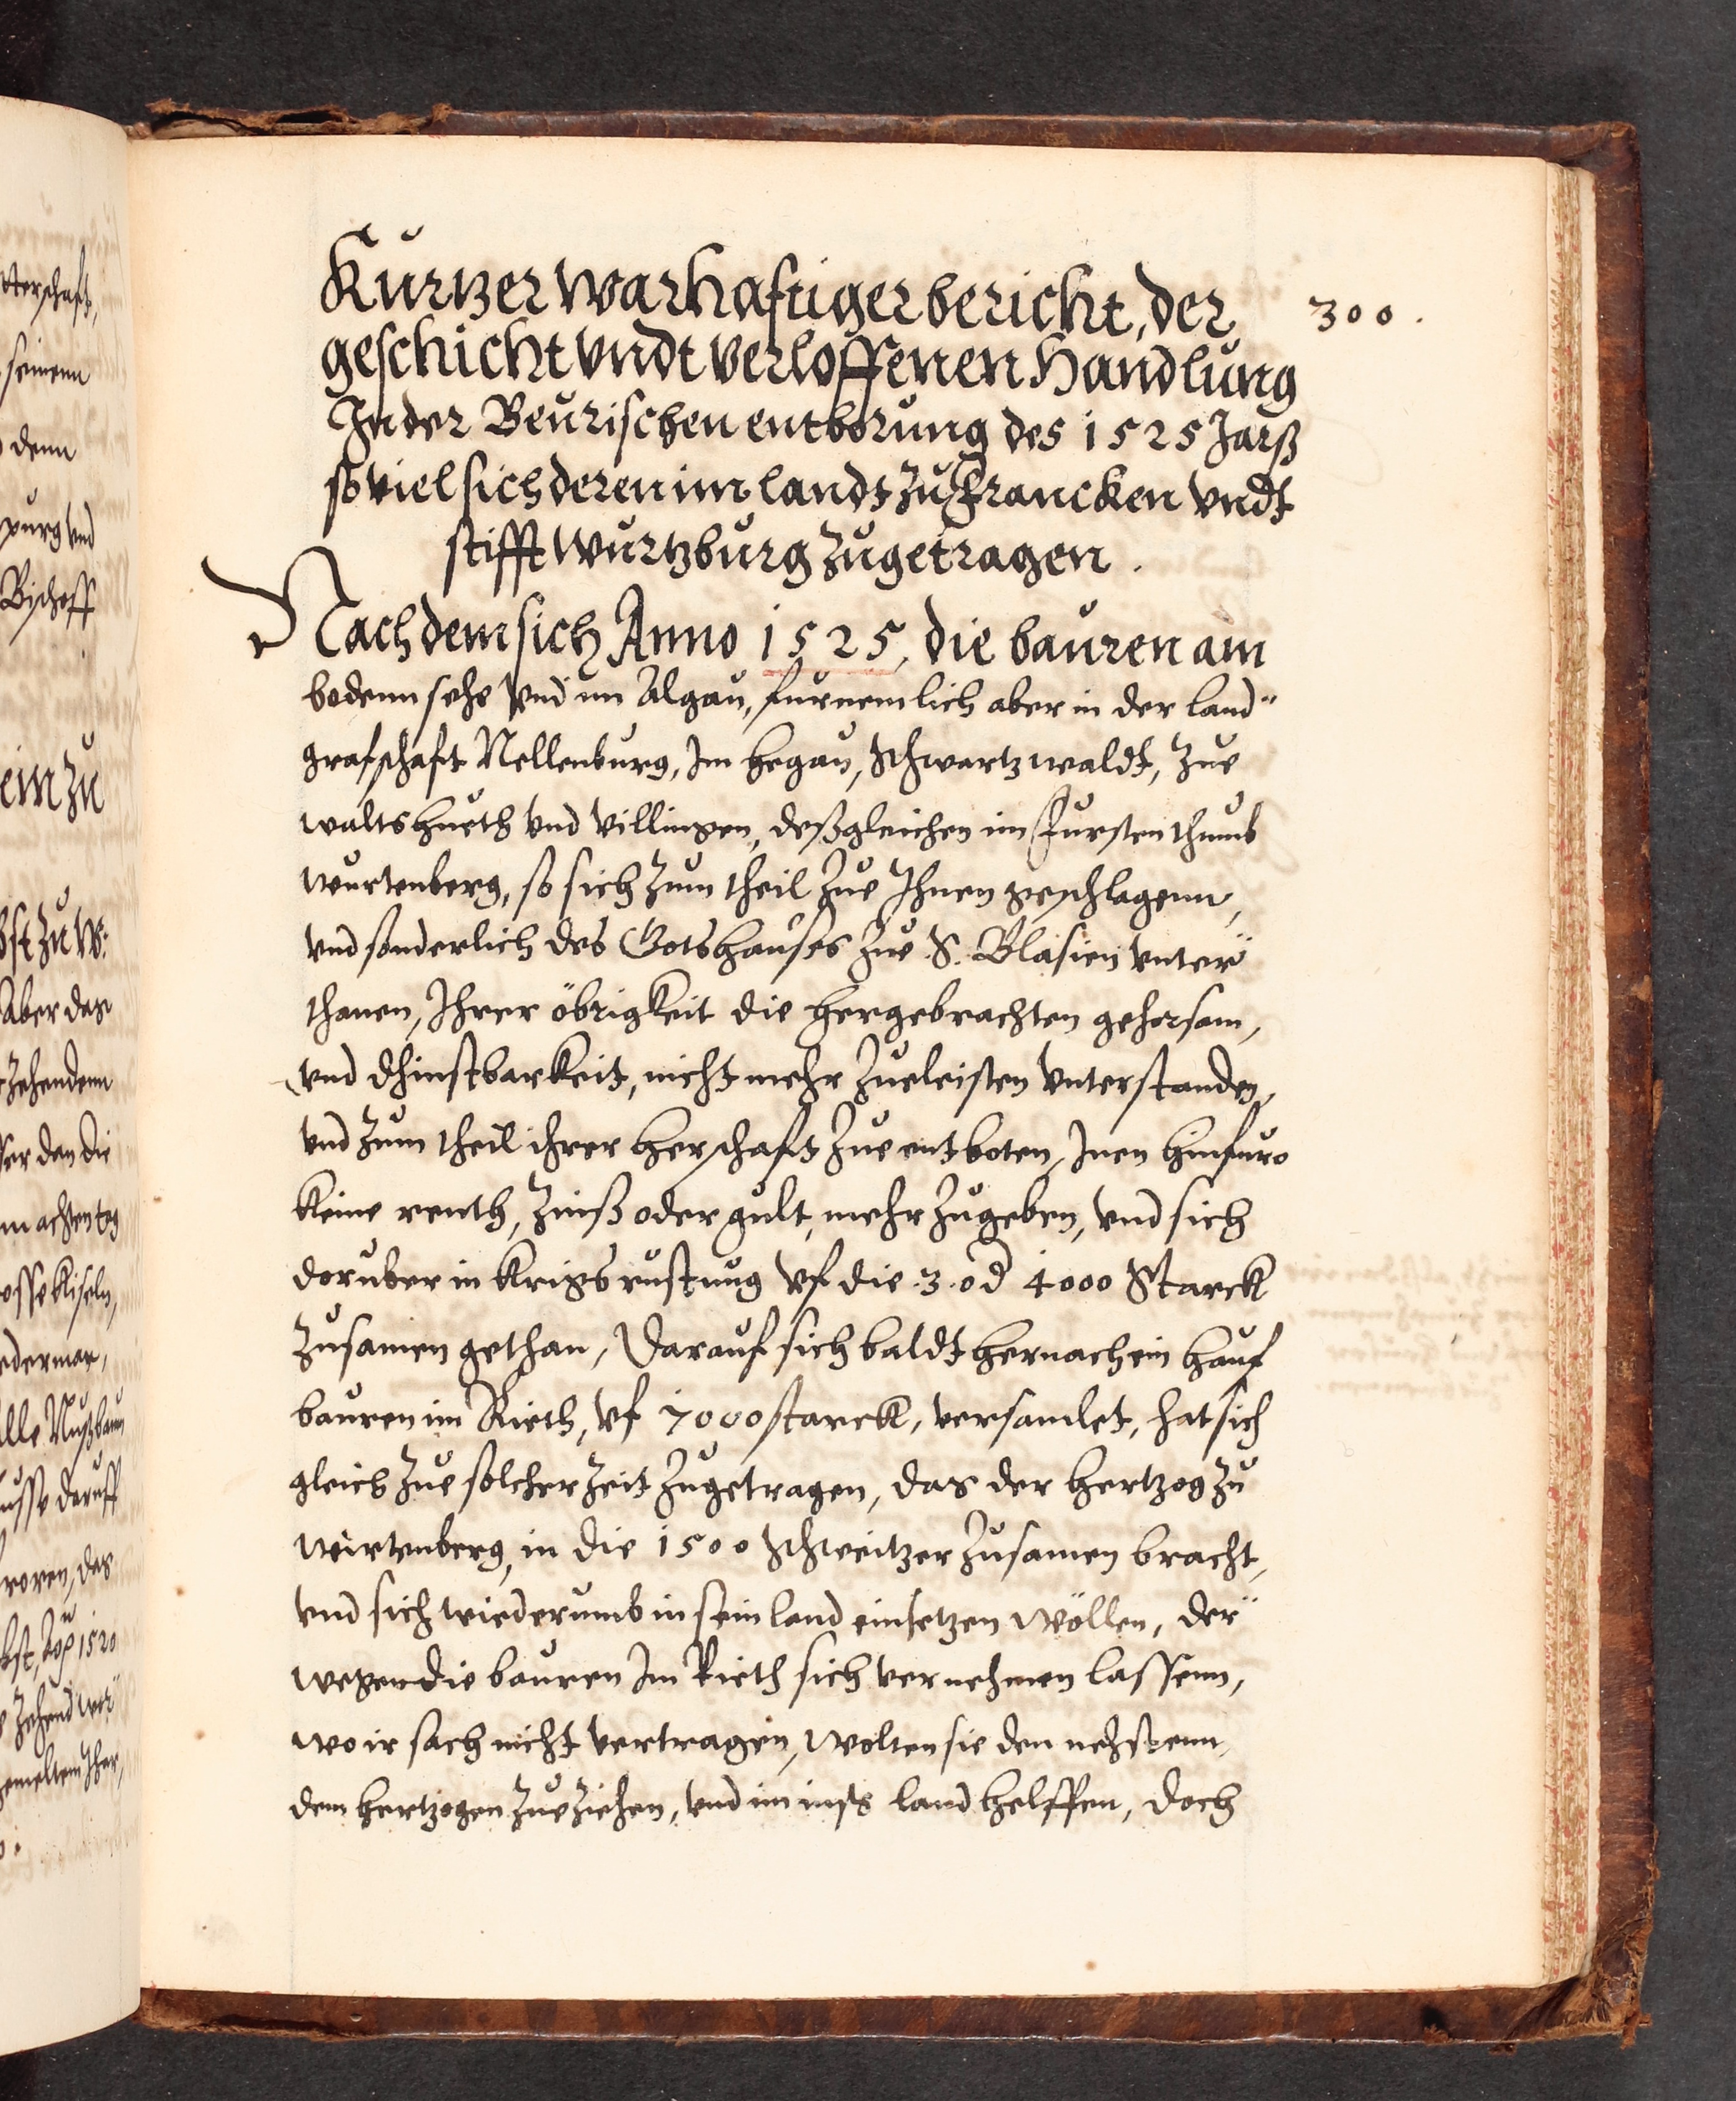 Kurtzer warhaftiger bericht, der
300.
geschicht vndt verloffenen Handlung
In der Beurischen entborung des 1525 Jarß
so viel sich deren im landt zu Francken vndt
stifft Wurtzburg zugetragen.
Nach dem sich Anno 1525, die bauren am
bodenn sehe vnd im Algau, furnemlich aber in der land
grafschaft Nellenburg, Im hegau, Schwartzwaldt, zue
waltshueth vnd villingen, deßgleichen im Furstenthumb
wurtenberg, so sich zum theil zue Ihnen geschlagenn,
vnd sonderlich des Gotshauses zue S. Blasien vnter
thanen, Ihrer öbrigkeit die hergebrachten gehorsam,
vnd dhinstbarkeit, nicht mehr zueleisten vnterstanden,
vnd zum theil ihrer herschaft zue entboten, Inen hinfuro
keine renth, zinß oder gult, mehr zugeben, vnd sich
doruber in krigsrustung vf die .3. od 4000 Starck
zusamen gethan, Darauf sich baldt hernach ein hauf
bauren im Rieth, vf 7000 starck, versamlet, hat sich
gleich zue solcher zeit zugetragen, das der hertzog zu
wirtenberg, in die 1500 Schweitzer zusamen bracht,
vnd sich wiederumb in sein land einsetzen wöllen, der
wegen die bauren Im Rieth sich vernehmen lassenn,
wo ir sach nicht vertragen, wolten sie den nehstenn
dem hertzogen zueziehen, vnd im ins land helffen, doch